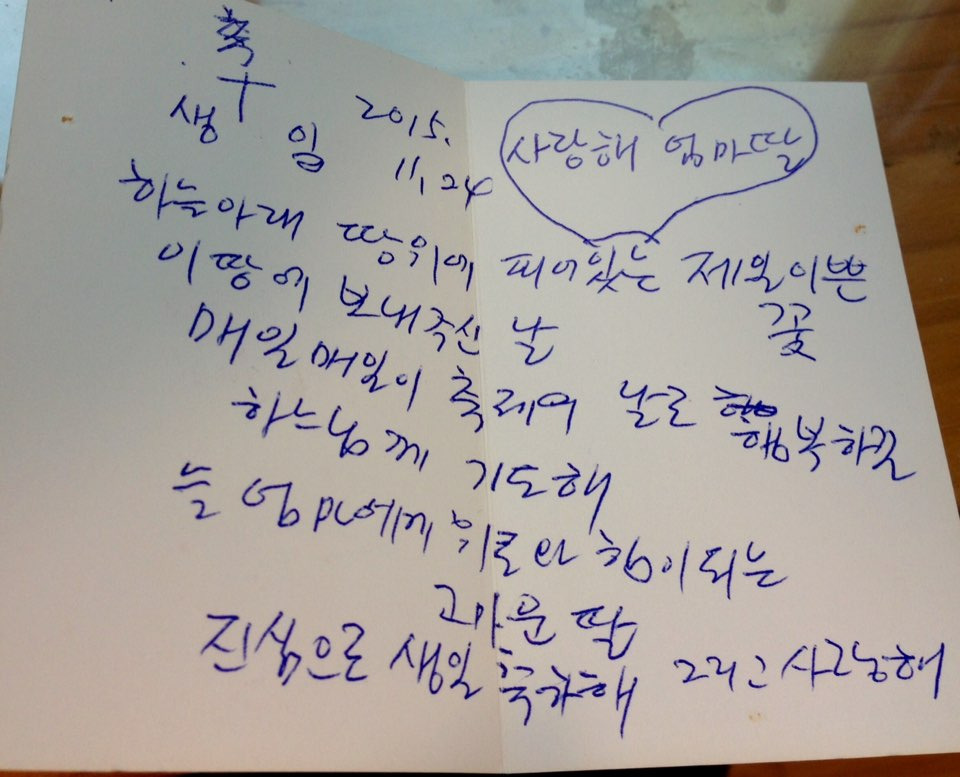 축
생 일
2015.
11, 24
사랑해 엄마딸
하늘아래 땅위에 피어있는 제일이쁜
꽃
이 땅에 보내주신 날
매일매일이 축제의 날로
행복하길
하느님께 기도해
늘 엄마에게 위로와 힘이되는
고마운 딸
진심으로 생일 축하해 그리고 사랑해